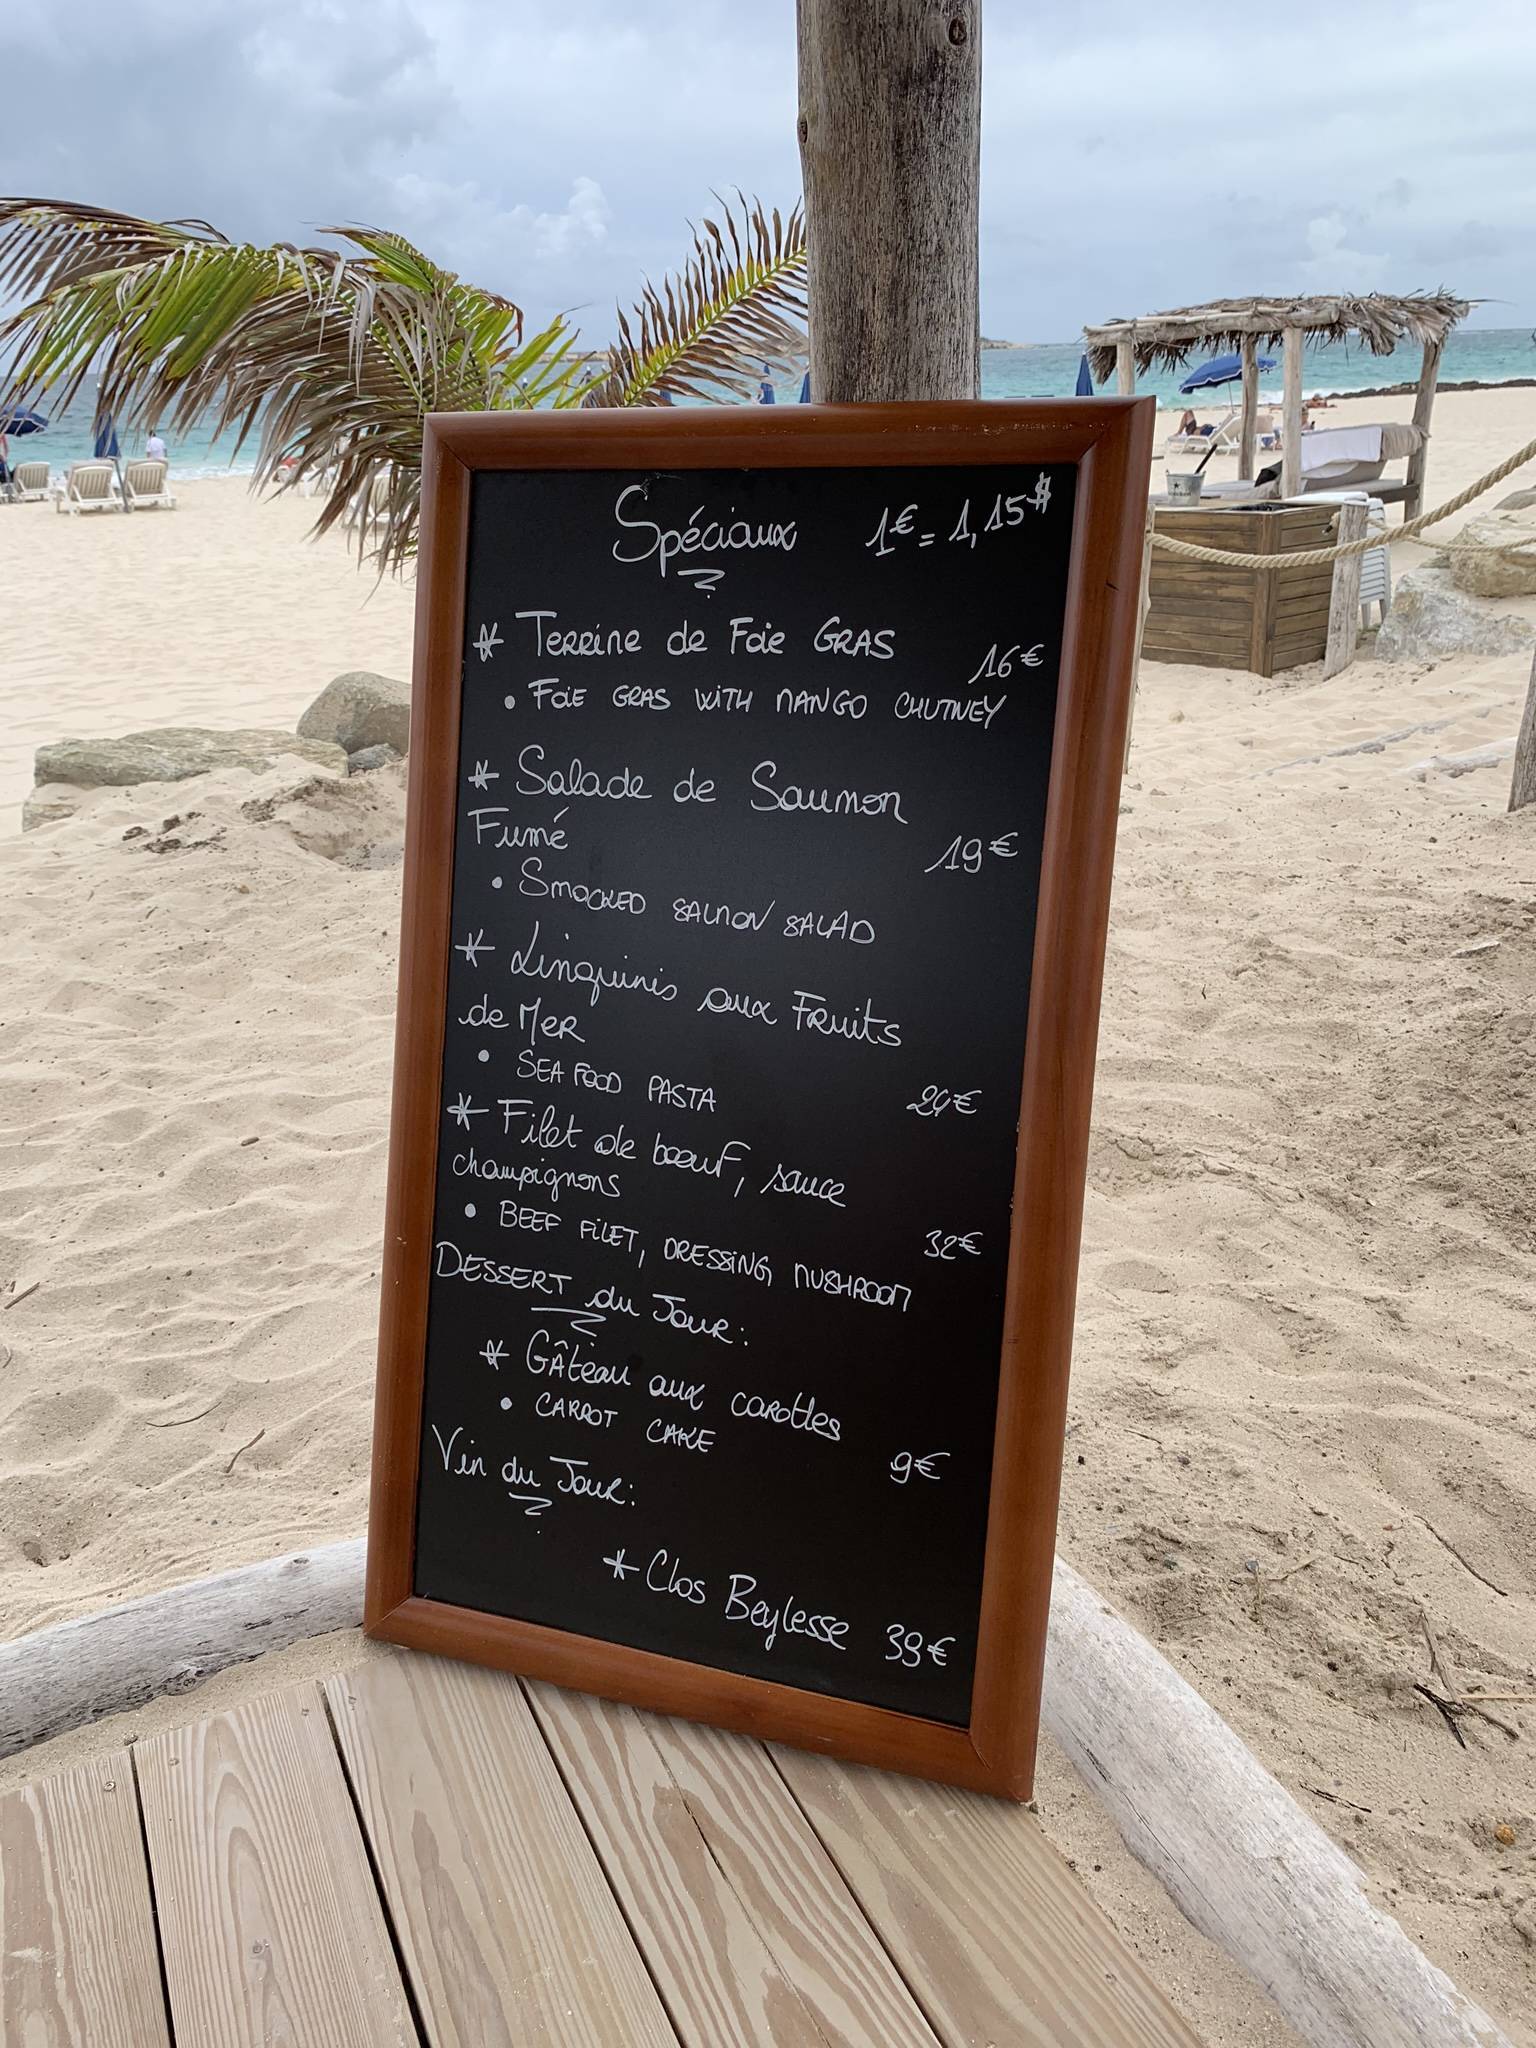 Spéciaux 1€ = 1,15$
* Terrine de Foie GRAS 16€
• Foie GRAS WITH MANGO CHUTNEY
* Salade de Saumon
Fumé 19€
• SMOCKED SALMON SALAD
* Linguinis aux Fruits
de Mer
• SEA FOOD PASTA 24€
* Filet de boeuf, sauce
champignons
• BEEF FILET, DRESSING MUSHROOM 32€
DESSERT du Jour:
* Gâteau aux carottes
• CARROT CAKE 9€
Vin du Jour:
* Clos Beylesse 39€